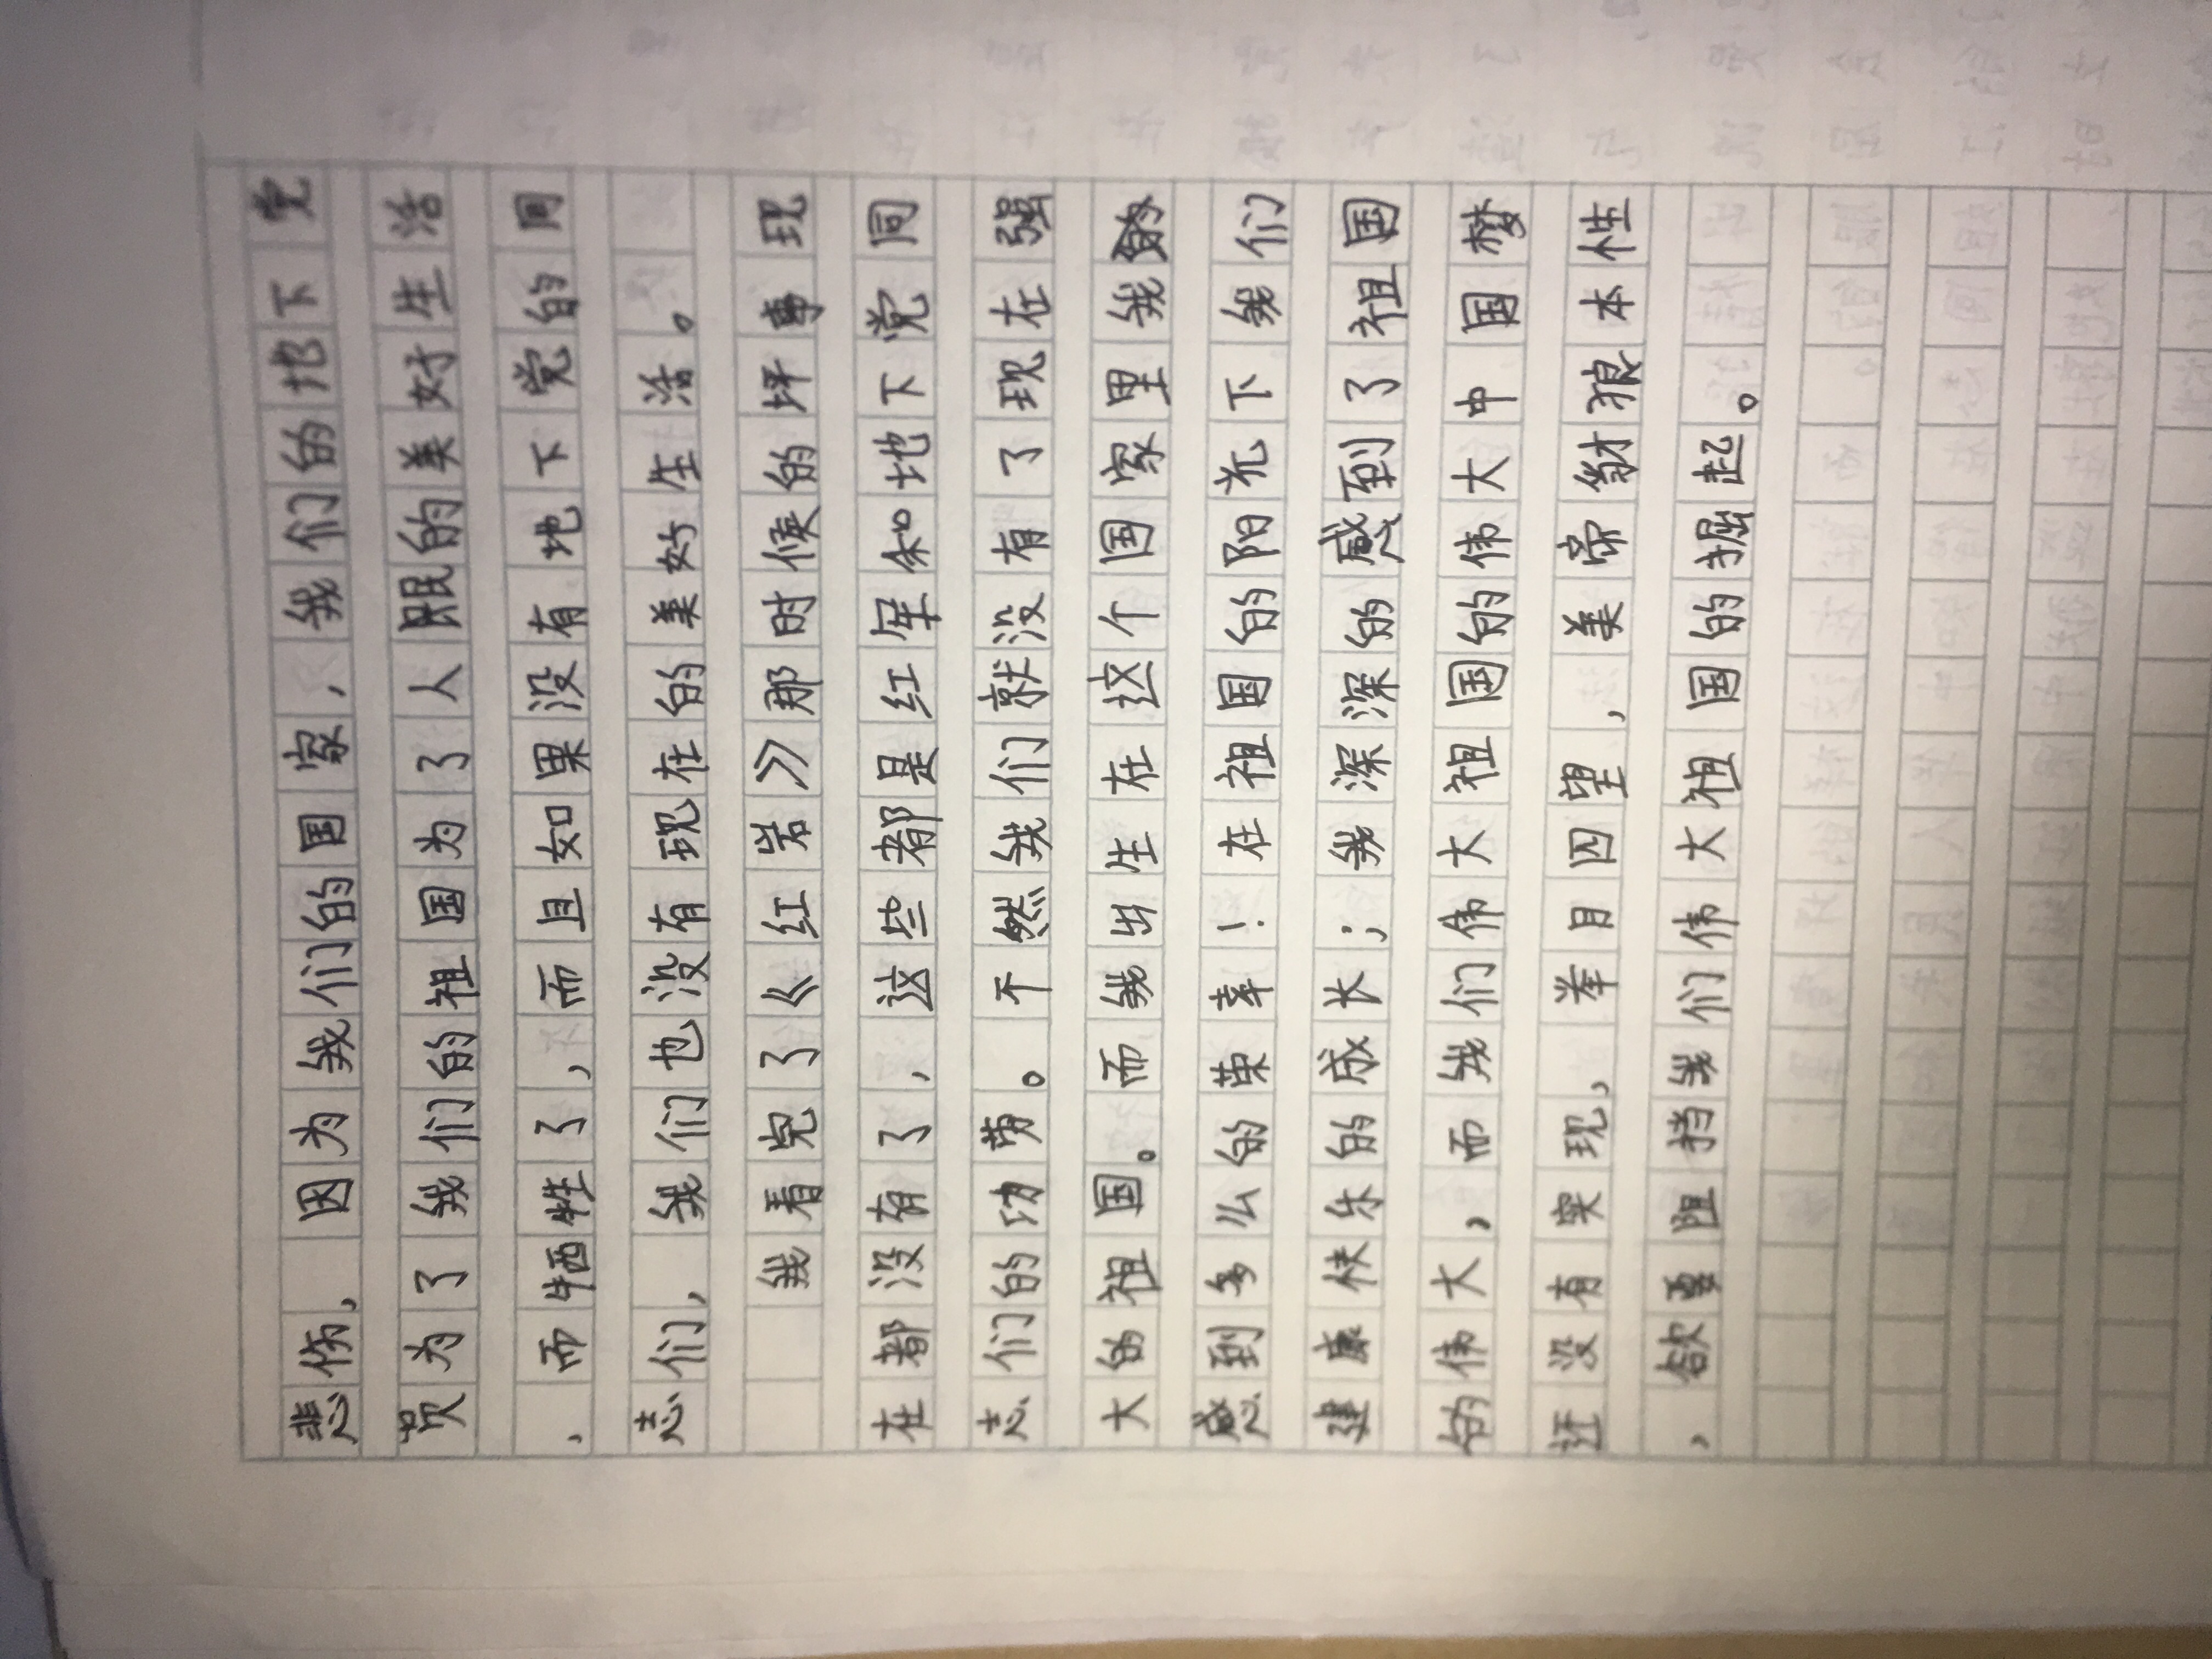 悲伤，因为我们的国家，我们的地下党
员为了我们的祖国为了人民的美好生活
，而牺牲了，而且如果没有地下党的同
志们，我们也没有现在的美好生活。
我看完了《红岩》那时候的坏事现
在都没有了，这些都是红军和地下党同
志们的功劳。不然我们就没有了现在强
大的祖国。而我出生在这个国家里我
感到多么的荣幸！在祖国的阳光下我们
建康快乐的成长；我深深的感到了祖国
的伟大，而我们伟大祖国的伟大中国梦
还没有实现，举目四望，美帝豺狼本性
，欲要阻挡我们伟大祖国的掘起。